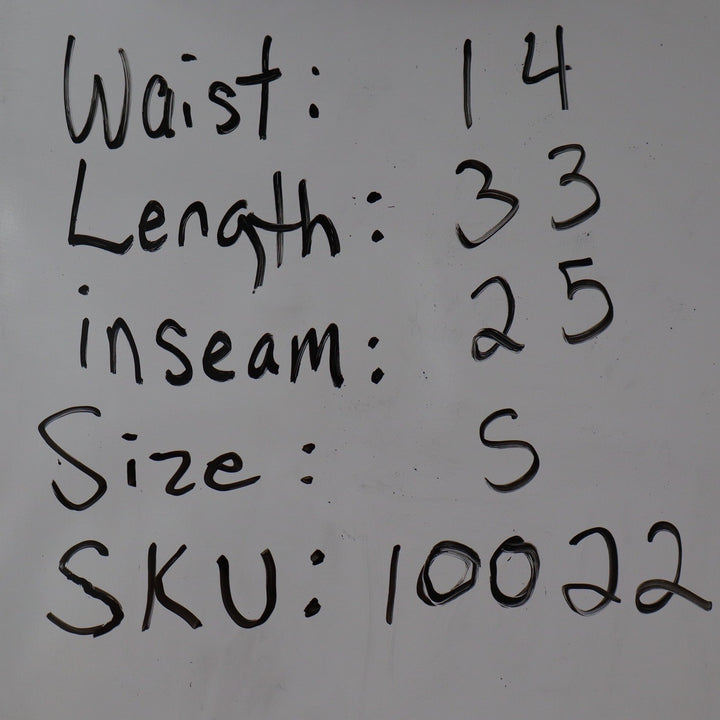 Waist: 14
Length: 33
inseam: 25
Size: S
SKU: 10022